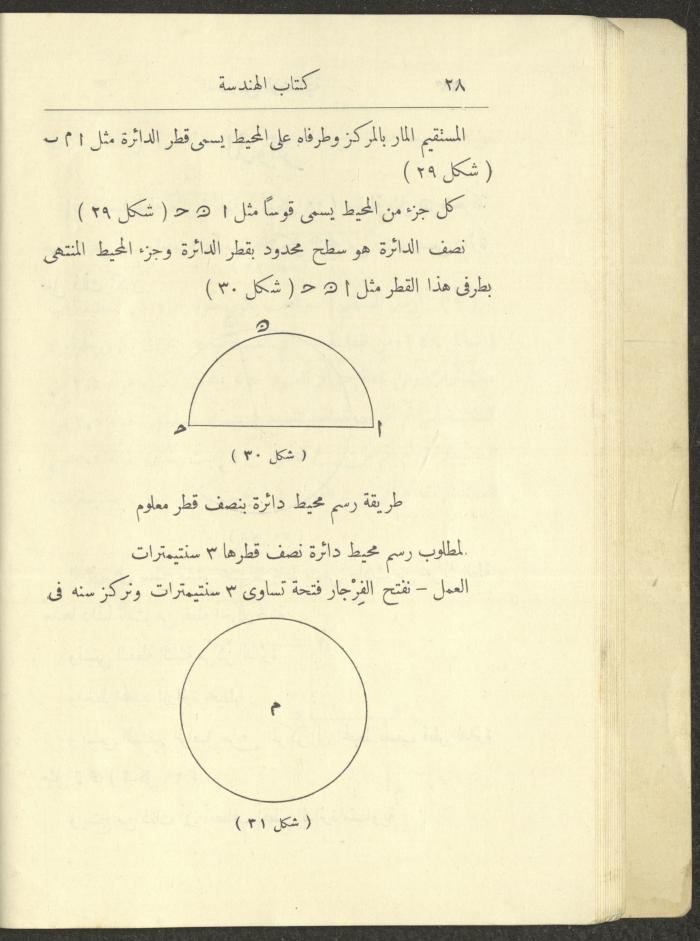 ٢٨ كتاب الهندسة
المستقيم المار بالمركز وطرفاه على المحيط يسمى قطر الدائرة مثل ا م ب
( شكل ٢٩ )
كل جزء من المحيط يسمى قوسًا مثل ا ه ح ( شكل ٢٩ )
نصف الدائرة هو سطح محدود بقطر الدائرة وجزء المحيط المنتهى
بطرفى هذا القطر مثل ا ه ح ( شكل ٣٠ )
ه
ح ا
( شكل ٣٠ )
طريقة رسم محيط دائرة بنصف قطر معلوم
لمطلوب رسم محيط دائرة نصف قطرها ٣ سنتيمترات
العمل – نفتح الفِرْجار فتحة تساوى ٣ سنتيمترات ونركز سنه فى
م
( شكل ٣١ )